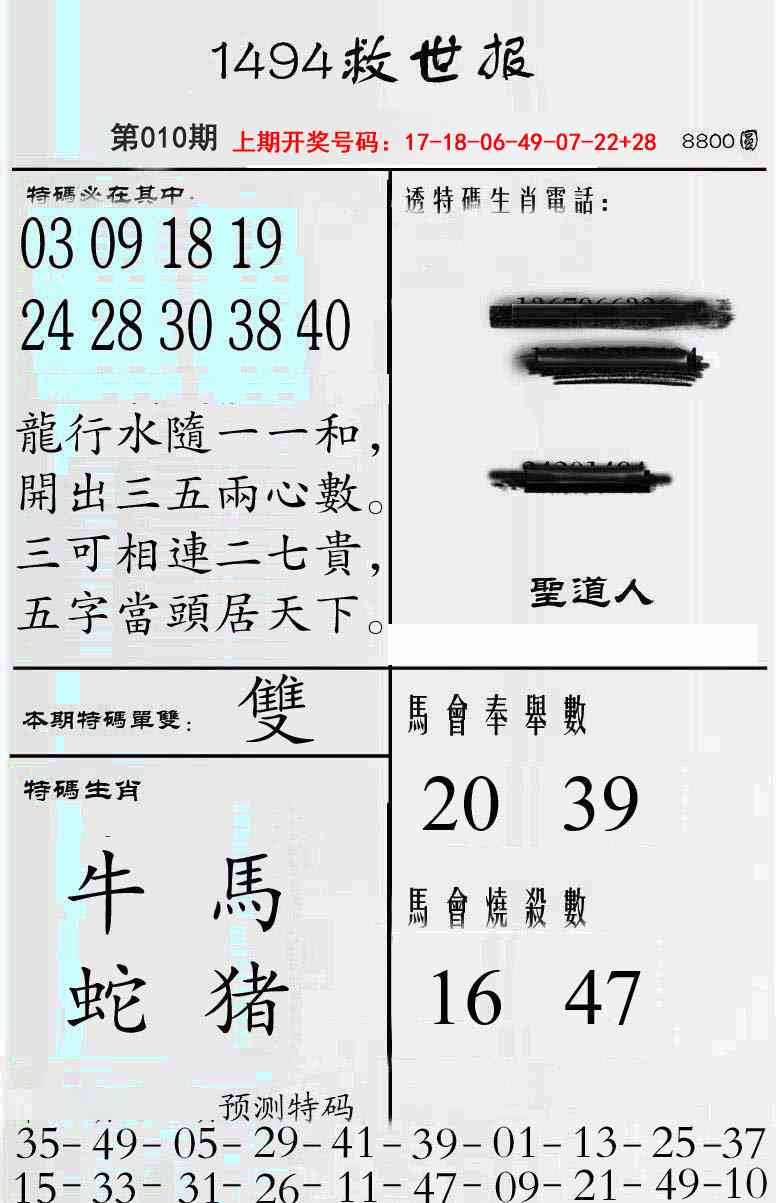 1494救世报
第010期 上期开奖号码：17-18-06-49-07-22+28 8800圓
特碼必在其中:
03 09 18 19
24 28 30 38 40
龍行水隨一一和，
開出三五兩心數。
三可相連二七貴，
五字當頭居天下。
透特碼生肖電話：
聖道人
本期特碼單雙： 雙
特碼生肖
牛 馬
蛇 猪
馬會奉舉數
20 39
馬會燒殺數
16 47
预测特码
35-49-05-29-41-39-01-13-25-37
15-33-31-26-11-47-09-21-49-10